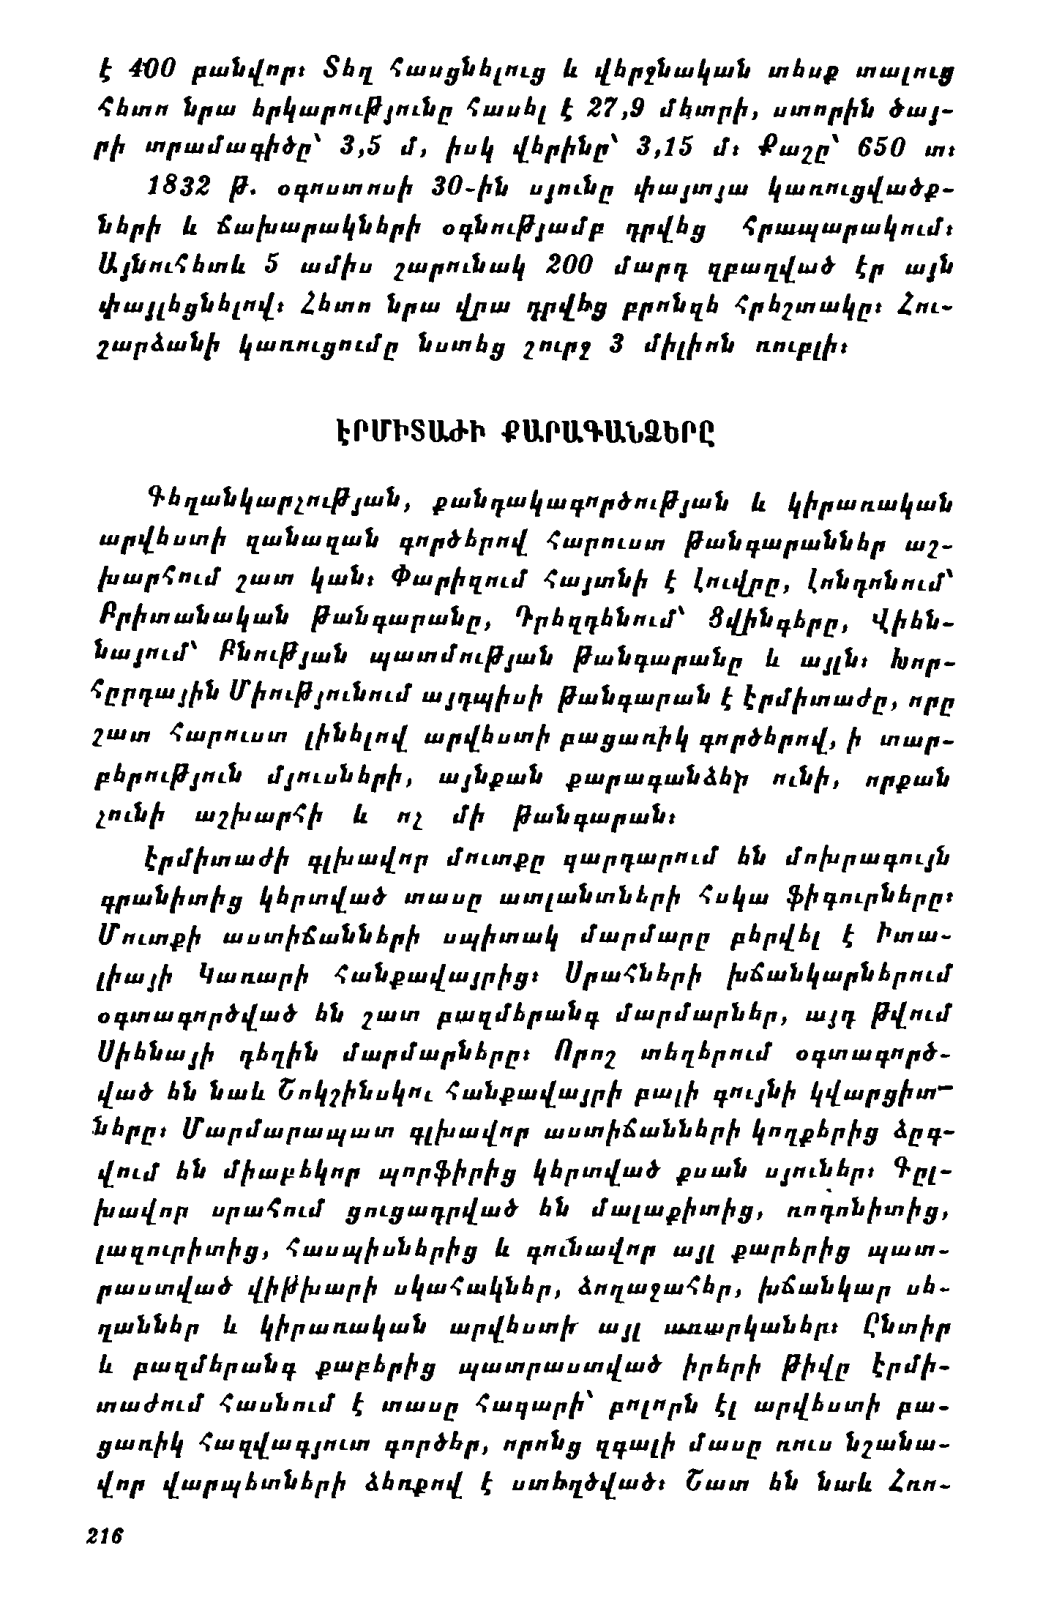 է 400 բանվոր։ Տեղ հասցնելուց և վերջնական տեսք տալուց
հետո նրա երկարությունը հասել է 27,9 մետրի, ստորին ծայ-
րի տրամագիծը՝ 3,5 մ, իսկ վերինը՝ 3,15 մ։ Քաշը՝ 650 տ։
1832 թ. օգոստոսի 30-ին սյունը փայտյա կառուցվածք-
ների և ճախարակների օգնությամբ դրվեց հրապարակում։
Այնուհետև 5 ամիս շարունակ 200 մարդ զբաղված էր այն
փայլեցնելով։ Հետո նրա վրա դրվեց բրոնզե հրեշտակը։ Հու-
շարձանի կառուցումը նստեց շուրջ 3 միլիոն ռուբլի։
ԷՐՄԻՏԱԺԻ ՔԱՐԱԳԱՆՁԵՐԸ
Գեղանկարչության, քանդակագործության և կիրառական
արվեստի զանազան գործերով հարուստ թանգարաններ աշ-
խարհում շատ կան։ Փարիզում հայտնի է Լուվրը, Լոնդոնում՝
Բրիտանական թանգարանը, Դրեզդենում՝ Ցվինգերը, Վիեն-
նայում՝ Բնության պատմության թանգարանը և այլն։ Խոր-
հըրդային Միությունում այդպիսի թանգարան է Էրմիտաժը, որը
շատ հարուստ լինելով արվեստի բացառիկ գործերով, ի տար-
բերություն մյուսների, այնքան քարագանձեր ունի, որքան
չունի աշխարհի և ոչ մի թանգարան։
Էրմիտաժի գլխավոր մուտքը զարդարում են մոխրագույն
գրանիտից կերտված տասը ատլանտների հսկա ֆիգուրները։
Մուտքի աստիճանների սպիտակ մարմարը բերվել է Իտա-
լիայի Կառարի հանքավայրից։ Սրահների խճանկարներում
օգտագործված են շատ բազմերանգ մարմարներ, այդ թվում
Սիենայի դեղին մարմարները։ Որոշ տեղերում օգտագործ-
ված են նաև Շոկշինսկու հանքավայրի բալի գույնի կվարցիտ-
ները։ Մարմարապատ գլխավոր աստիճանների կողքերից ձըգ-
վում են միաբեկոր պորֆիրից կերտված քսան սյուներ։ Գըլ-
խավոր սրահում ցուցադրված են մալաքիտից, ռոդոնիտից,
լազուրիտից, հասպիսներից և գունավոր այլ քարերից պատ-
րաստված վիթխարի սկահակներ, ձողաջահեր, խճանկար սե-
ղաններ և կիրառական արվեստի այլ առարկաներ։ Ընտիր
և բազմերանգ քաբերից պատրաստված իրերի թիվը Էրմի-
տաժում հասնում է տասը հազարի՝ բոլորն էլ արվեստի բա-
ցառիկ հազվագյուտ գործեր, որոնց զգալի մասը ռուս նշանա-
վոր վարպետների ձեռքով է ստեղծված։ Շատ են նաև Հռո-
216